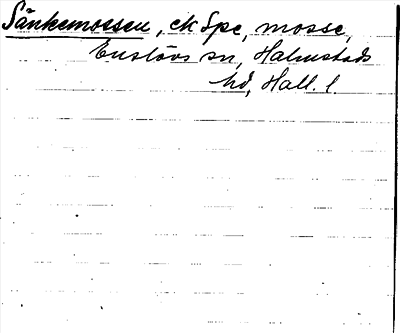 Sänkemossen, ek Spe, mosse,
Enslövs sn, Halmstads
hd, Hall. l.